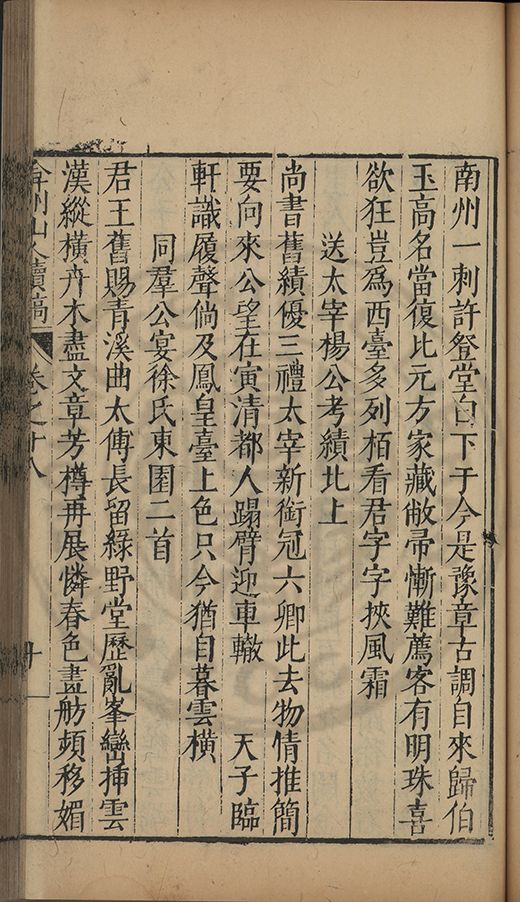 南州一刺許登堂白下于今是豫章古調自來歸伯
玉高名當復比元方家藏敝帚慚難薦客有明珠喜
欲狂豈爲西臺多列栢看君字字挾風霜
送太宰楊公考績北上
尚書舊績優三禮太宰新銜冠六卿此去物情推簡
要向來公望在寅清都人蹋臂迎車轍　天子臨
軒識履聲倘及鳳皇臺上色只今猶自暮雲橫
同羣公宴徐氏東園二首
君王舊賜青溪曲太傅長留綠野堂歷亂峯巒揷雲
漢縱橫卉木盡文章芳樽再展憐春色畫舫頻移媚
弇州山人續稿　卷之十八　十